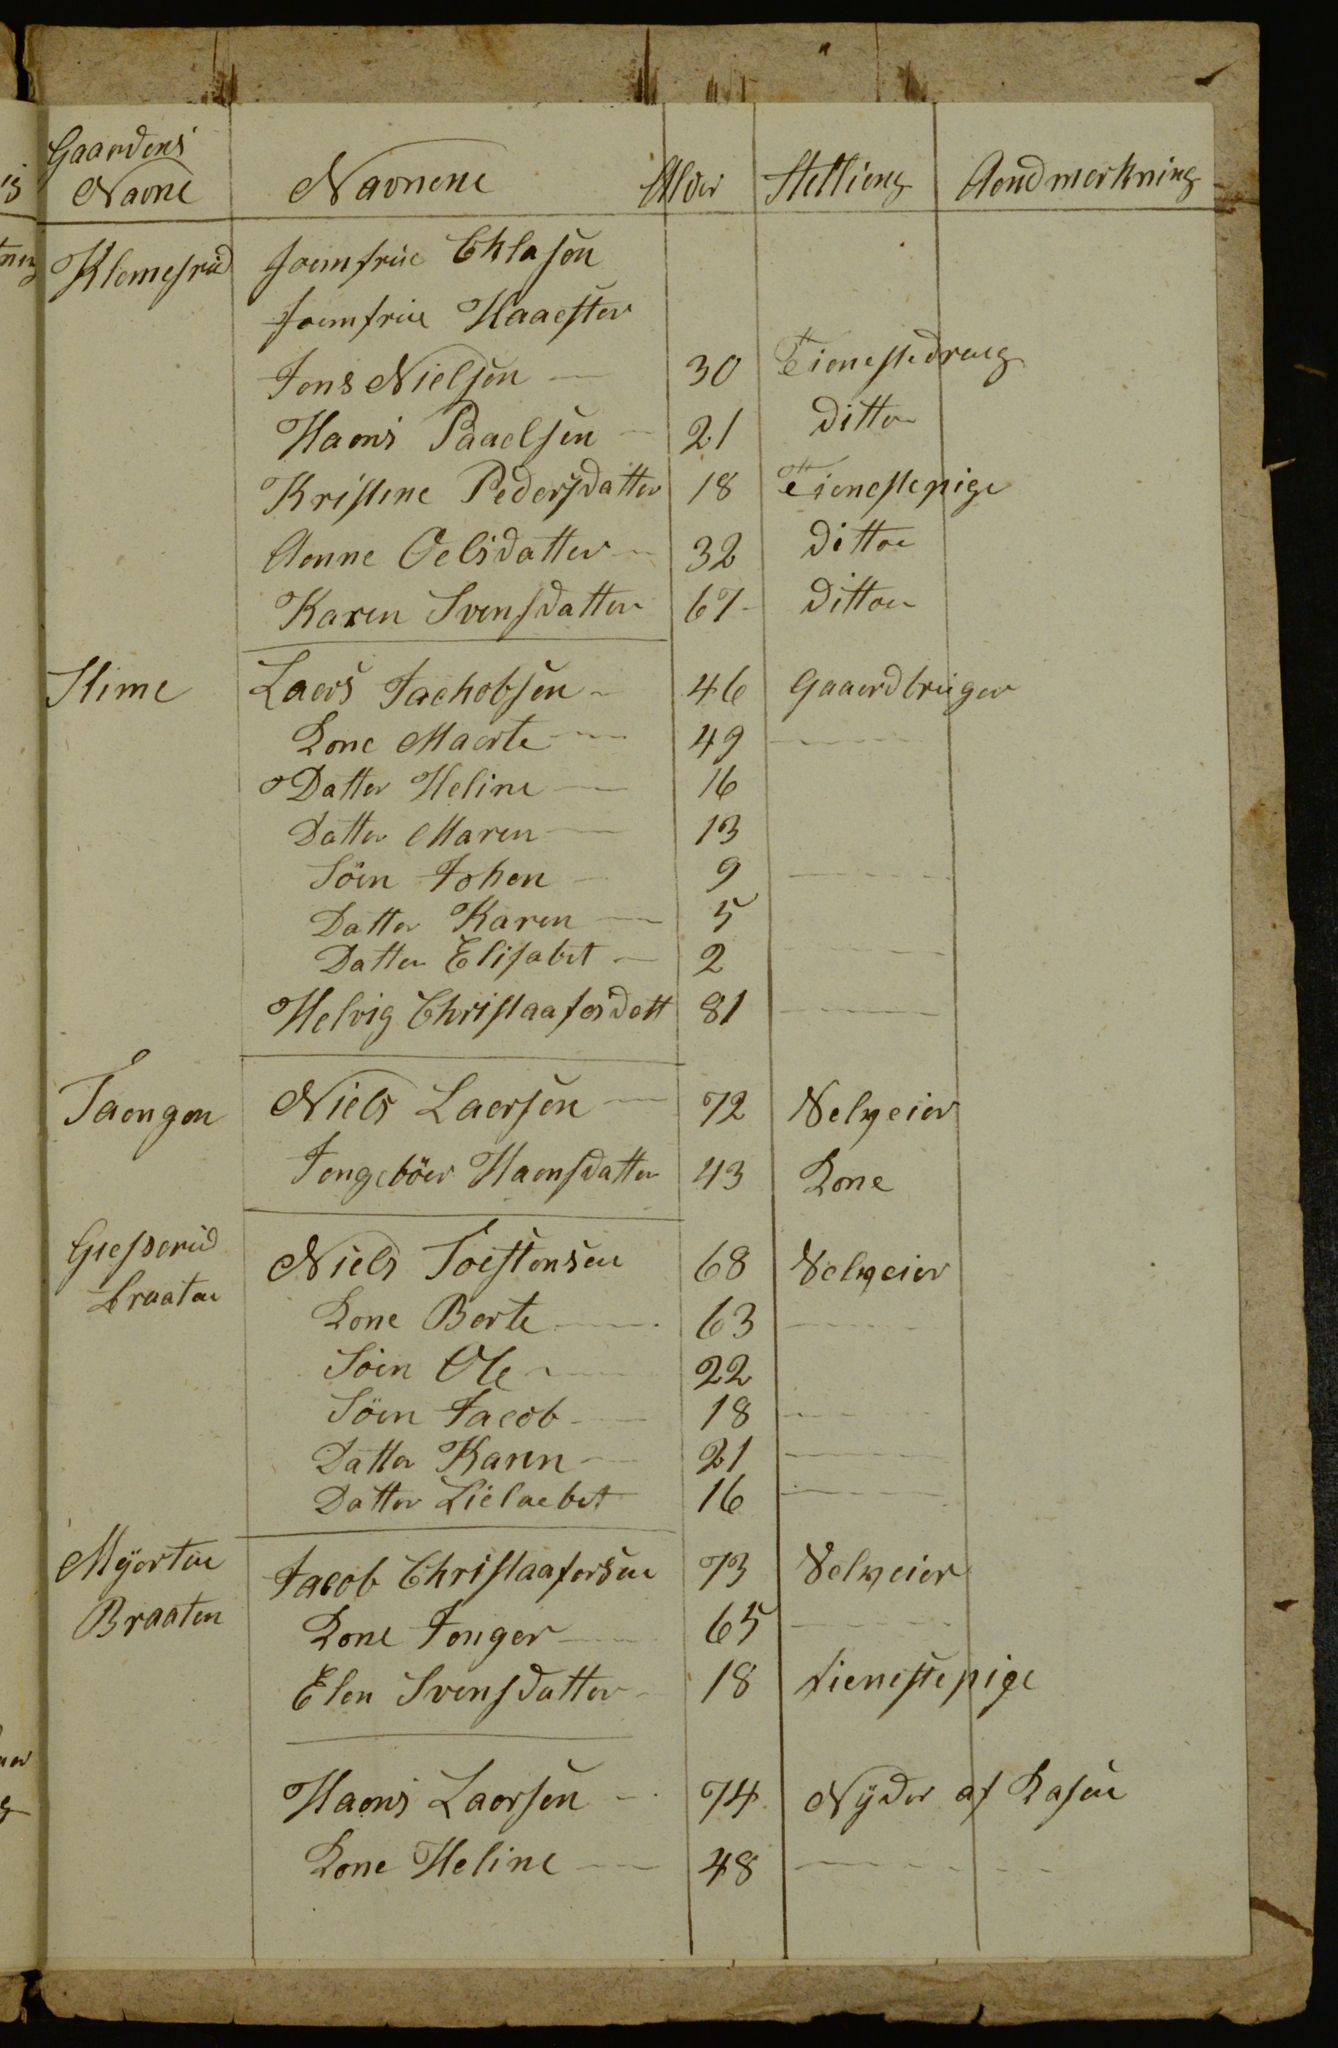 Gaardens Navne | Navnene | Alder | Stelling | Andmerkning
Klemesrud | Jomfrue Eklasen
Jomfrue Haaester
Jens Nielsen — | 30 | Tienestedreng
Hans Paaelsen — | 21 | ditto
Kristine Pedersdatter | 18 | Tienestepige
Aenne Oelsdatter — | 32 | ditto
Karen Svensdatter | 67 | ditto
Stime | Laers Jachobsen | 46 | Gaardbruger
Kone Maerte — | 49 | —
Datter Heline — | 16
Datter Maren — | 13
Söen Johen — | 9 | —
Datter Karen — | 5
Datter Elisabet — | 2 | —
Helvig Christaafersdatt | 81 | —
Tangen | Niels Laersen — | 72 | Selveier
Ingeböer Haensdatter | 43 | Kone
Braaten | Niels Toestensen | 68 | Selveier
Kone Berte — | 63 | —
Söen Ole — | 22
Söen Jacob — | 18 | —
Datter Karen — | 21 | —
Datter Lielaebet | 16 | —
Myerten | Jacob Christaafersen | 73 | Selveier
Braaten | Kone Inger — | 65 | —
Elen Svensdatter — | 18 | tienestepige
Haens Laersen — | 74 | Nyder af Kasen
Kone Heline — | 48 | —